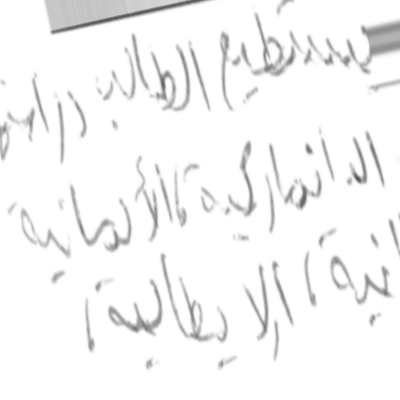 يستطيع الطالب دراسة
الدانماركية، الألمانية
انية، الإيطالية،